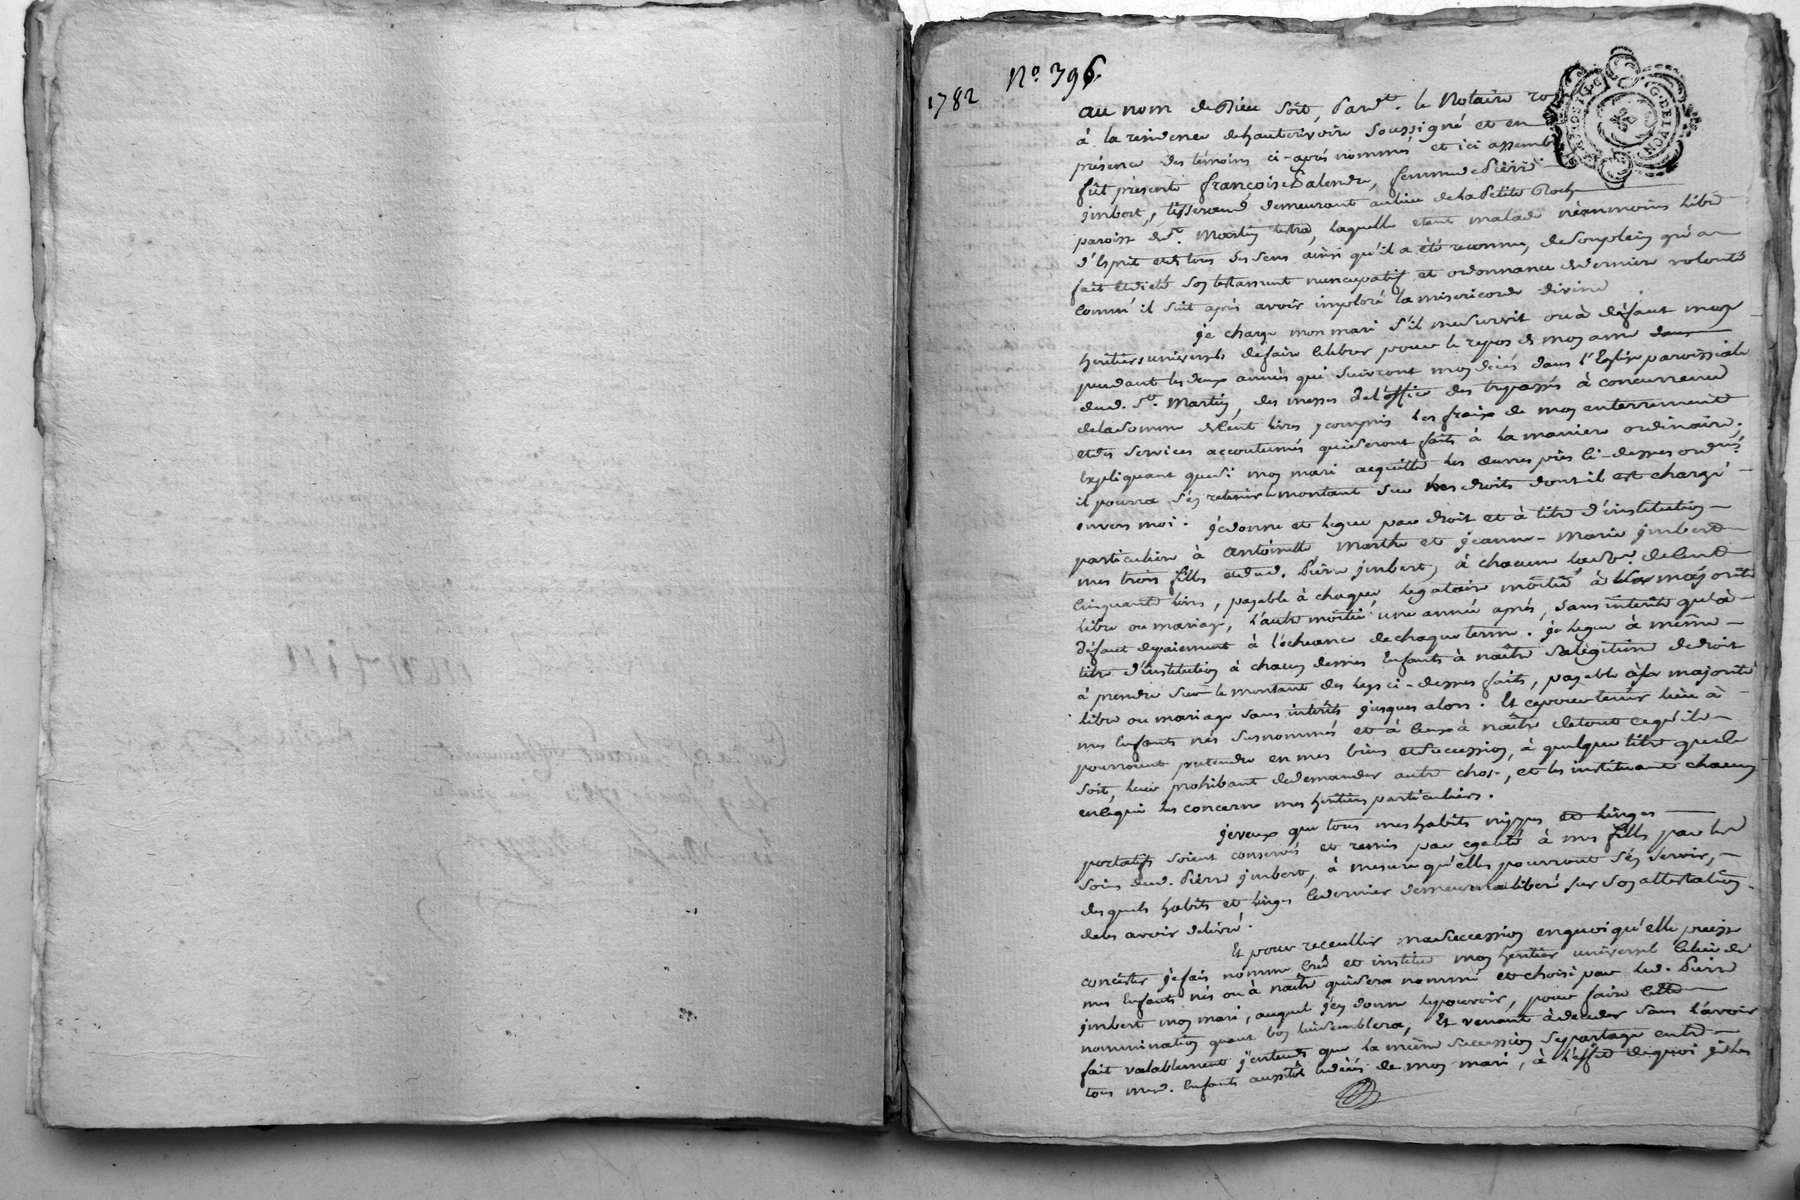 1782
N.o 396.
au nom de Dieu soit, Pardt. le Notaire ro
à la residence dehauterivoire soussigné et en
présence des témoins ci-après nommés et ici assemb
fût présente françoise Dalende, femme de Pierre
jmbert, tisserand demeurant au lieu de la Petite Roch
paroisse de St. Martin lestra, laquelle etant malade néanmoins libre
d'Esprit et de tous ses sens ainsi qu'il a été reconnu, de son plein gré a
fait et dicté son testament nuncupatif et ordonnance de derniere volonté
comm'il suit après avoir imploré la misericorde divine
je charge mon mari s'il me survit ou à défaut mon
heritier universel de faire celebrer pour le repos de mon ame dans
pendant les deux années qui suivront mon décés dans l'Eglise paroissiale
dud. St. Martin, des messes de l'office des trepassés à concurrence
de la somme de Cent livres y compris les fraix de mon enterrement
et des services accoutumés qui seront faits à la maniere ordinaire,
Expliquant que si mon mari acquitte les œuvres pies ci-dessus ordonés
il pourra s'en retenir le montant sur les droits dont il est chargé
envers moi: je donne et legue par droit et à titre d'institution
particuliere à antoinette, marthe et jeanne-Marie jmbert
mes trois filles et dud. Pierre jmbert, à chacune la some de Cent
Cinquante livres, payable à chaque legataire moitié à leur majorité
libre ou mariage, l'autre moitié une année aprés, sans interêts qu'à
défaut de paiement à l'écheance de chaque terme. je legue à même
titre d'institution à chacun de mes Enfants à naître sa légitime de droit
à prendre sur le montant des legs ci-dessus faits, payable à sa majorité
libre ou mariage sans interêts jusques alors. Et ce pour tenir lieu à
mes Enfants nés susnommés et à ceux à naître de tout ce qu'ils
pourroient pretendre en mes biens et succession, à quelque titre que ce
soit, leur prohibant de demander autre chose, et les instituant chacun
en ce qui les concerne mes héritiers particuliers.
je veux que tous mes habits nippes et linges
portatifs soient conservés et remis par egalité à mes filles par les
soins dud. Pierre jmbert, à mesure qu'elles pourront s'en servir,
desquels habits et linges ce dernier demeurera liberé sur son attestation
de les avoir delivré.
Et pour recueillir ma succession en quoi qu'elle puisse
concister je fais nomme Crée et institue mon héritier universel celui de
mes Enfants nés ou à naitre qui sera nommé et choisi par led. Pierre
jmbert mon mari, auquel j'en donne le pouvoir, pour faire cette
nomination quant bon lui semblera, Et venant à deceder sans l'avoir
fait valablement j'entends que la même succession se partage entre
tous mesd. Enfants aussitôt le décés de mon mari, à l'effet de quoi je les